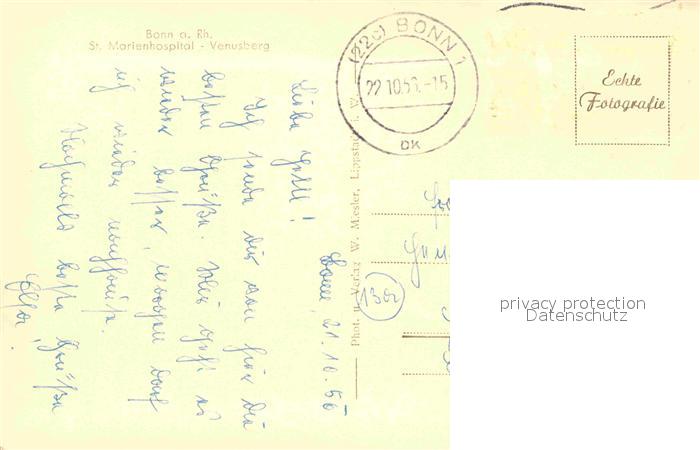 Bonn a. Rh.
St. Marienhospital - Venusberg
(22c) BONN 1
22.10.56.-15
DK
Echte
Fotografie
Phot. u. Verlag W. Miesler, Lippstadt i. W.
Bonn, 21.10.56
Liebe
Ich sende Dir von hier die
besten Grüße. Mir geht es
wieder besser, morgen darf
ich wieder
Nochmals beste Grüße
privacy protection
Datenschutz